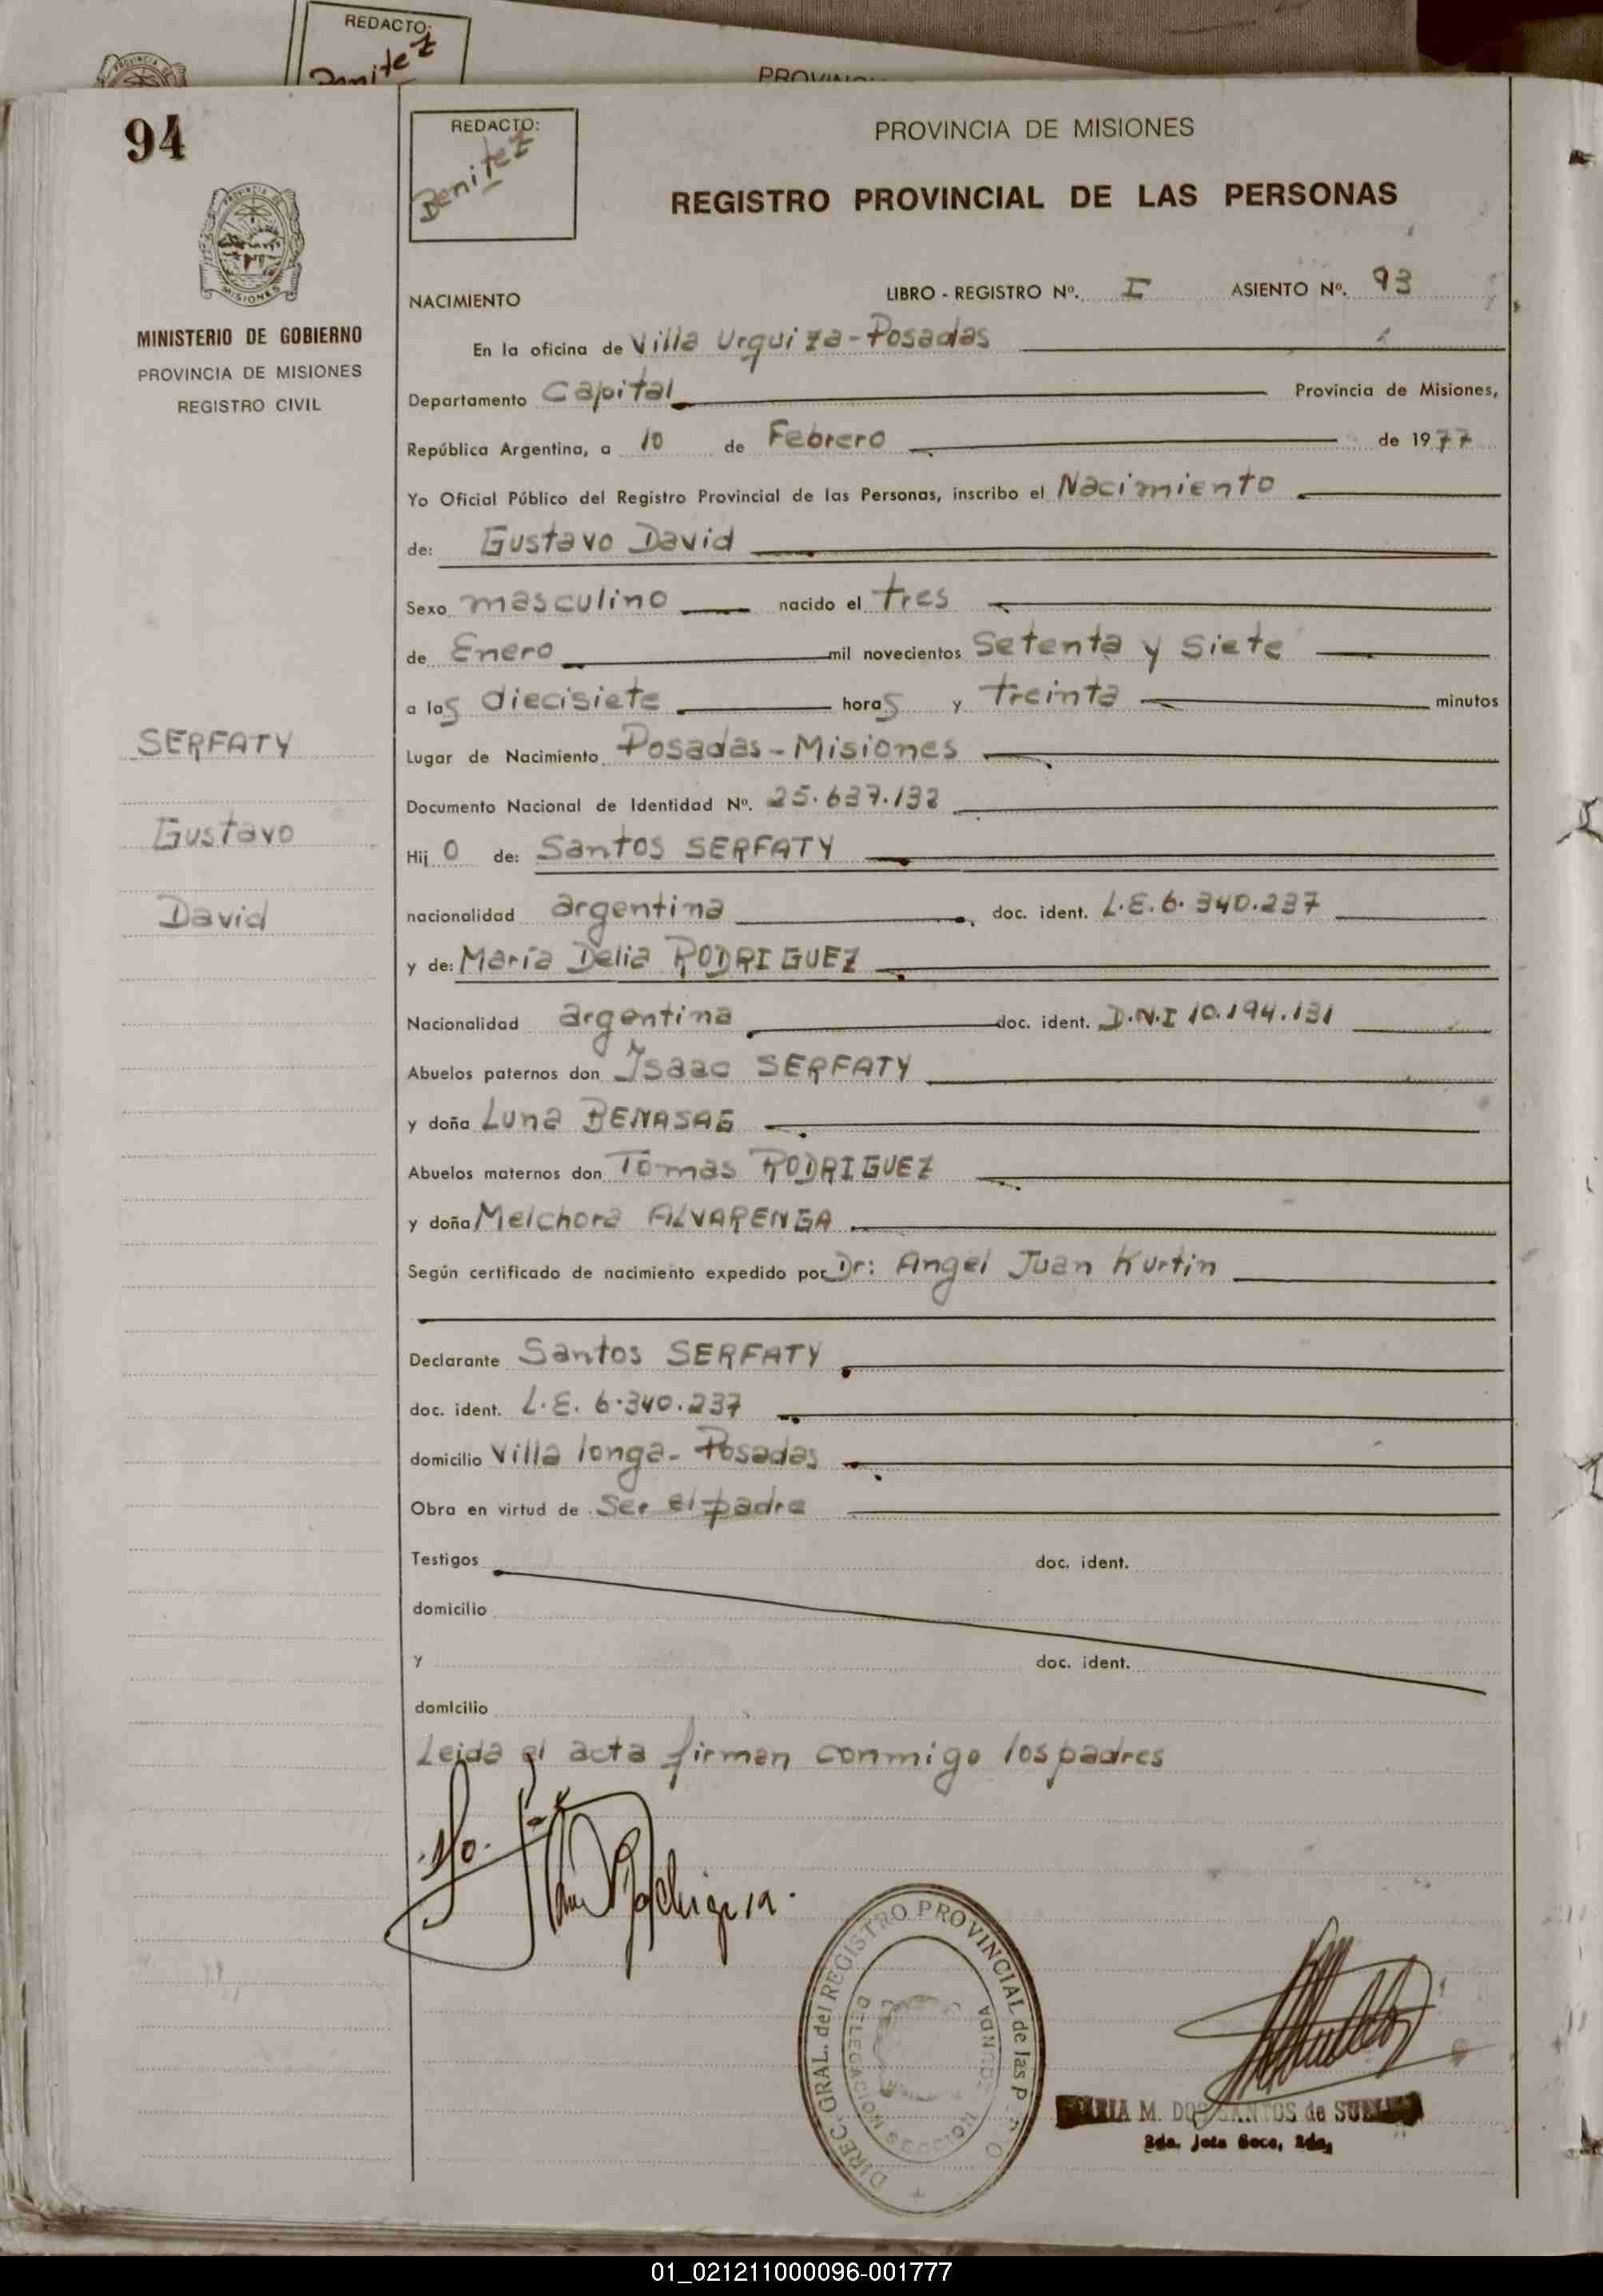 REDACTO:
Benitez
94
REDACTO:
Benitez
PROVINCIA DE MISIONES
REGISTRO PROVINCIAL DE LAS PERSONAS
MISIONES
MINISTERIO DE GOBIERNO
PROVINCIA DE MISIONES
REGISTRO CIVIL
NACIMIENTO LIBRO - REGISTRO Nº. I ASIENTO Nº. 93
En la oficina de Villa Urquiza-Posadas
Departamento Capital Provincia de Misiones,
República Argentina, a 10 de Febrero de 1977
Yo Oficial Público del Registro Provincial de las Personas, inscribo el Nacimiento
de: Gustavo David
Sexo masculino nacido el tres
de Enero mil novecientos setenta y siete
a las diecisiete horas y treinta minutos
SERFATY
Gustavo
David
Lugar de Nacimiento Posadas-Misiones
Documento Nacional de Identidad Nº. 25.637.132
Hij o de: Santos SERFATY
nacionalidad argentina doc. ident. L.E. 6.340.237
y de: María Delia RODRIGUEZ
Nacionalidad argentina doc. ident. D.N.I 10.194.131
Abuelos paternos don Isaac SERFATY
y doña Luna BENASAG
Abuelos maternos don Tomas RODRIGUEZ
y doña Melchora ALVARENGA
Según certificado de nacimiento expedido por Dr: Angel Juan Kurtin
Declarante Santos SERFATY
doc. ident. L.E. 6.340.237
domicilio Villa longa- Posadas
Obra en virtud de ser el padre
Testigos doc. ident.
domicilio
y doc. ident.
domicilio
Leida el acta firman conmigo los padres
DIREC. GRAL. del REGISTRO PROVINCIAL de las
DELEGACION
MARIA M. DOS SANTOS de
2da. Jefa Secc. 2da.
01_021211000096-001777